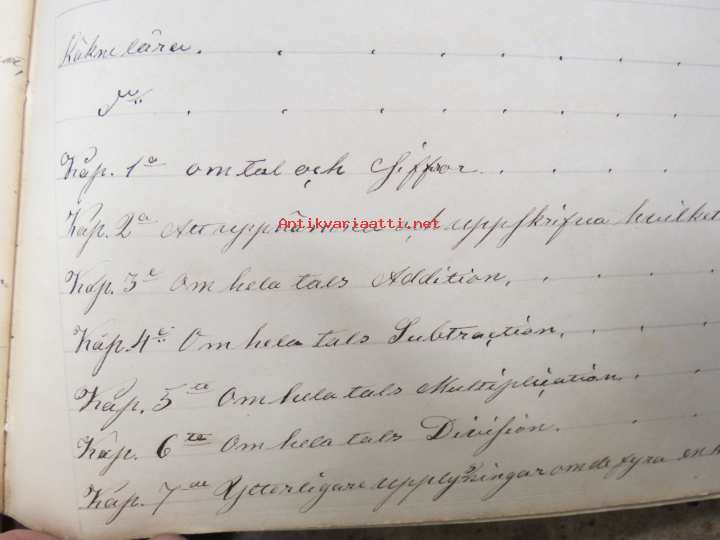 Räknelära.
Kap. 1a om tal och Siffror.
Kap. 2a Att upp och uppskrifva hvilket
Antikvariaatti.net
Kap. 3e Om hela tals Addition,
Kap. 4e Om hela tals Subtraction,
Kap. 5te Om hela tals Multiplication
Kap. 6te Om hela tals Division.
Kap. 7de Ytterligare upplysningar om de fyra